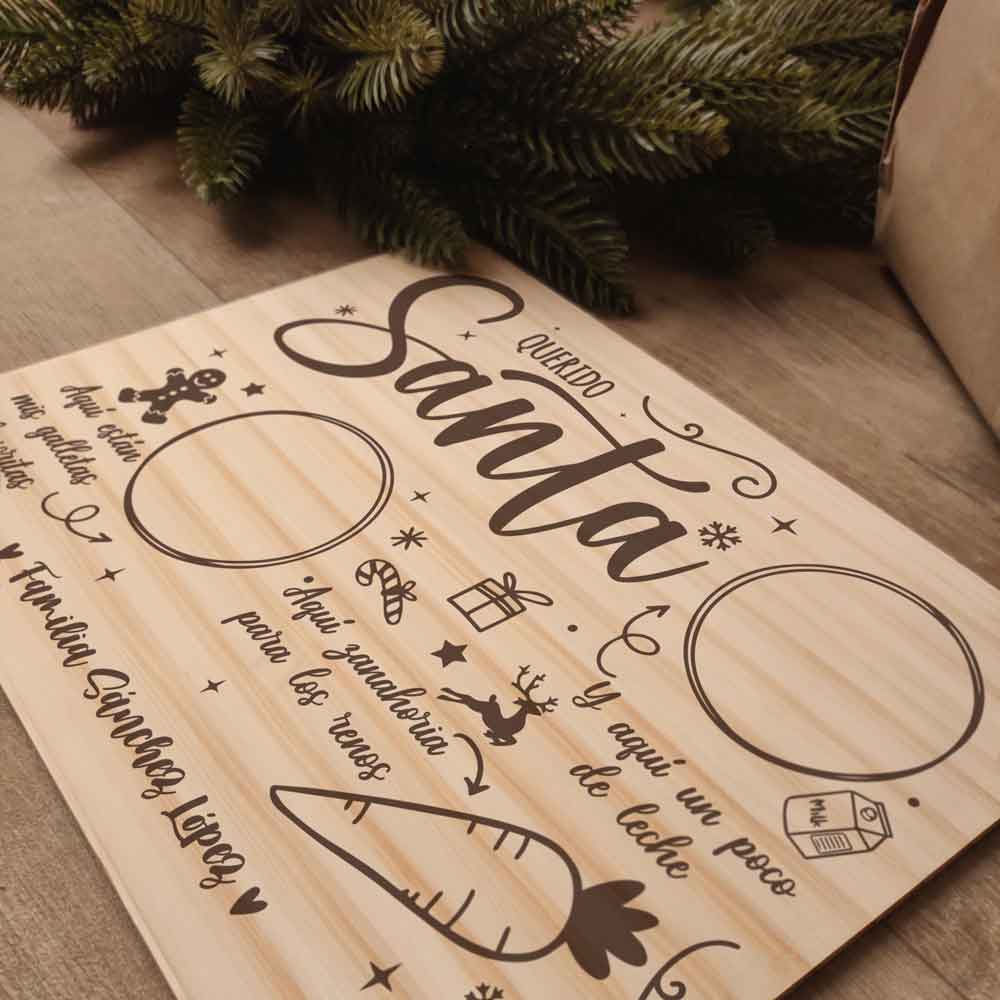 QUERIDO
Santa
Aquí están
mis galletas
Aquí zanahoria
para los renos
Y aquí un poco
de leche
Milk
Familia Sánchez López